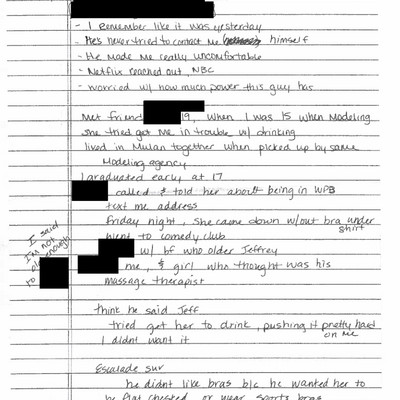 - I remember like it was yesterday
- He's never tried to contact me himself
- He made me really uncomfortable
- Netflix reached out, NBC
- worried w/ how much power this guy has
Met friend 19, when I was 15 when modeling
she tried get me in trouble w/ drinking
lived in together when picked up by same
Modeling agency
I graduated early at 17
called & told her about being in WPB
text me address
Friday night, she came down w/out bra under shirt
went to comedy club
w/ bf who older Jeffrey
me, & girl who thought was his
massage therapist
I said
I'm not
old enough
to
think he said Jeff
tried get her to drink, pushing it pretty hard on me
I didnt want it
Escalade suv
he didnt like bras b/c he wanted her to
be flat chested or wear sports bras